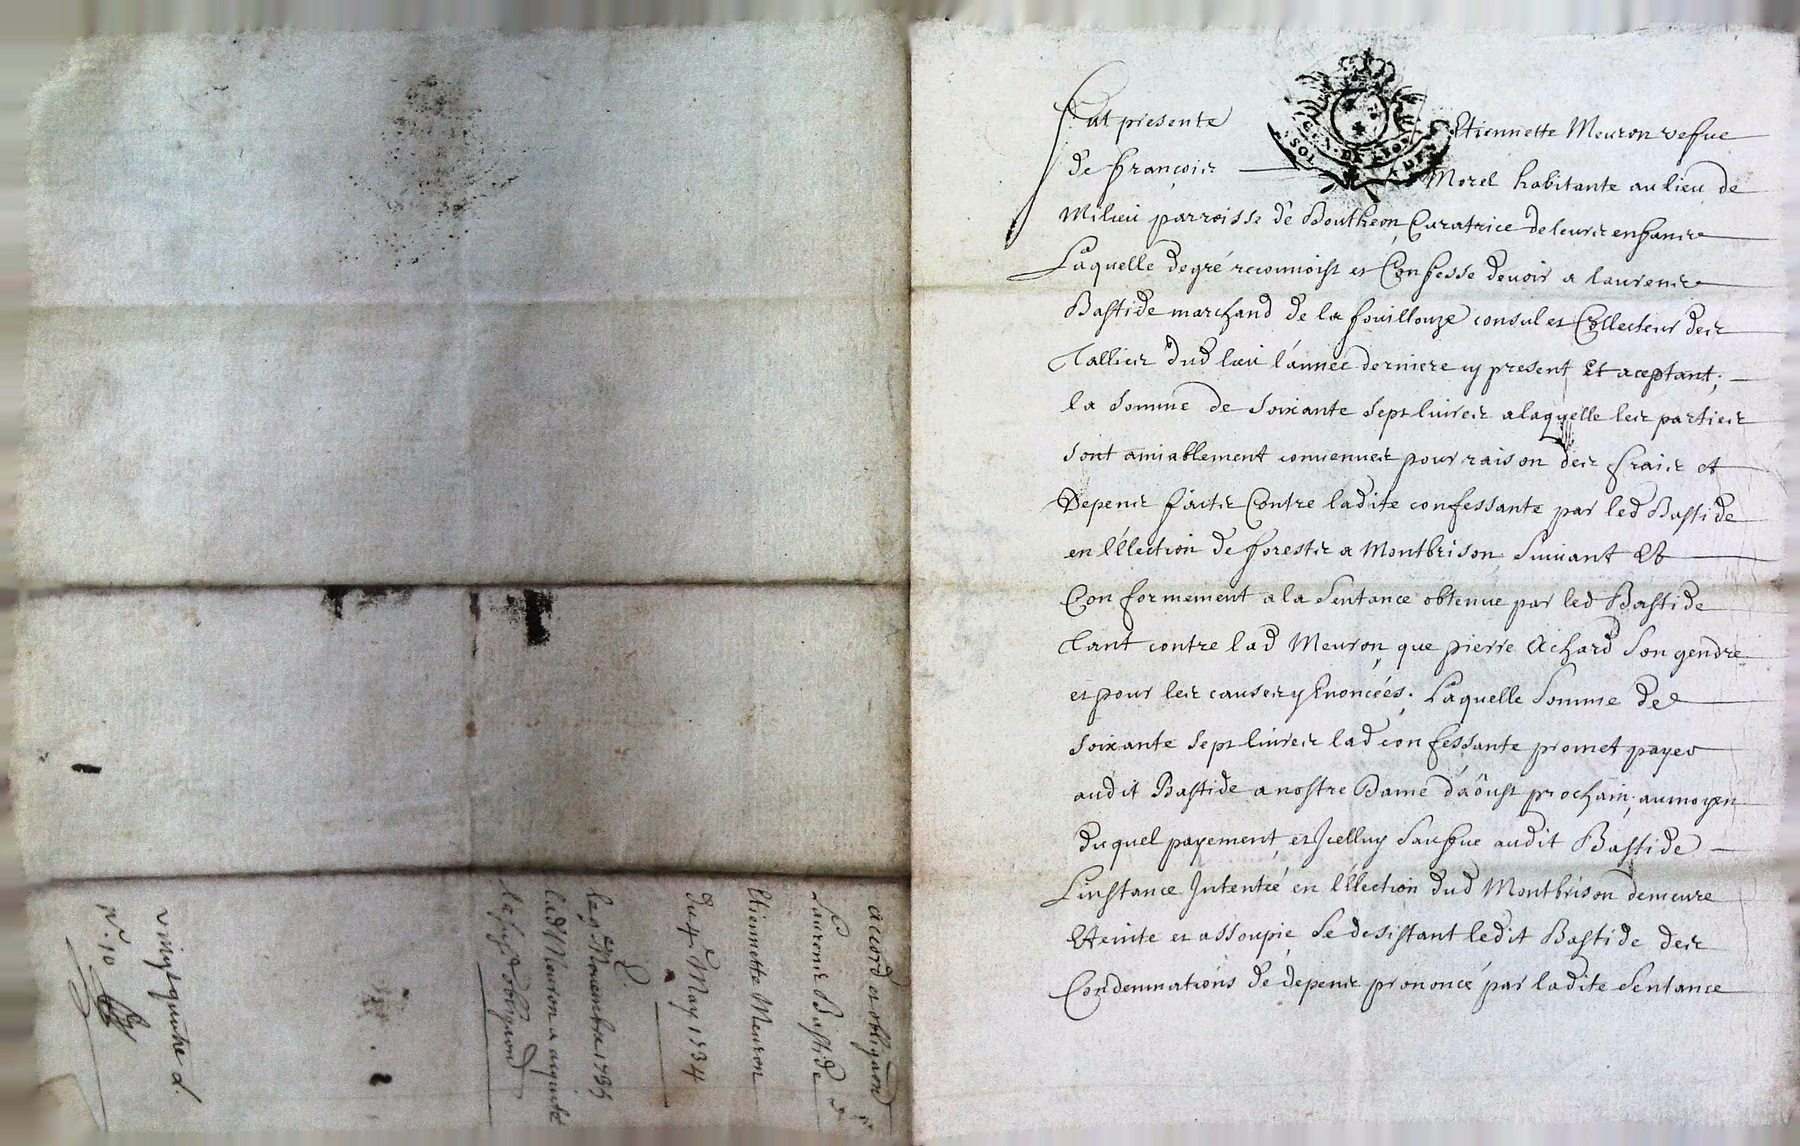 accord et obligaon
Laurens Bastide
Etiennette Meuron
du 4e May 1734
le 9e Novembre 1735
lad Meuron a aquité
lad obligaon
vingt quatre d.
N°. 10
GEN. DE LYON
SOL DEN
Fut presente Etiennette Meuron vefve
De françois Morel habitante au lieu de
Milieu parroisse de Boutheon, Curatrice de leurs enfans
Laquelle de gré reconnoist et Confesse devoir a laurens
Bastide marchand de la fouillouze consul et Collecteur des
Tallies dud lieu l'année derniere cy present Et aceptant,
la somme de soixante sept livres a laquelle les parties
sont amiablement convenues pour raison des frais et
Depens faits Contre ladite confessante par led Bastide
en l'Election de forests a Montbrison, suivant Et
Conformement a la sentance obtenue par led Bastide
Tant contre lad Meuron, que pierre Achard son gendre
et pour les causes y Enoncées, Laquelle somme de
soixante sept livres lad confessante promet payer
audit Bastide a nostre Dame d'août prochain, au moyen
duquel payement, et Jcelluy sauf que audit Bastide
L'instance Intentée en l'Election dud Montbrison demeure
Eteinte et assoupie, se desistant ledit Bastide des
Condemnations de depens prononcé par ladite sentance